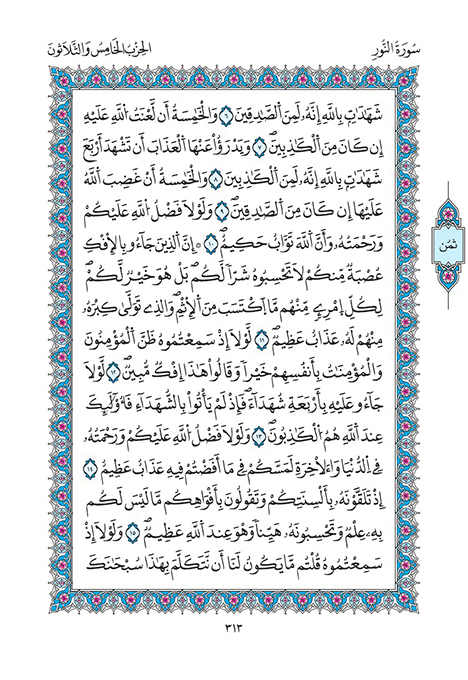 سُورَةُ النُّورِ
الحِزْبُ الخَامِسُ وَالثَّلَاثُونَ
شَهَٰدَٰتِۭ بِاللَّهِ إِنَّهُۥ لَمِنَ ٱلصَّٰدِقِينَۖ ٦ وَالْخَٰمِسَةُ أَن لَّعْنَتُ اللَّهِ عَلَيْهِ
إِن كَانَ مِنَ ٱلْكَٰذِبِينَۖ ٧ وَيَدْرَؤُاْ عَنْهَا ٱلْعَذَابَ أَن تَشْهَدَ أَرْبَعَ
شَهَٰدَٰتِۭ بِاللَّهِ إِنَّهُۥ لَمِنَ ٱلْكَٰذِبِينَ ٨ وَالْخَٰمِسَةُ أَنْ غَضِبَ ٱللَّهُ
عَلَيْهَا إِن كَانَ مِنَ ٱلصَّٰدِقِينَۖ ٩ وَلَوْلَا فَضْلُ ٱللَّهِ عَلَيْكُمْ
وَرَحْمَتُهُۥ وَأَنَّ ٱللَّهَ تَوَّابٌ حَكِيمٌۖ ١٠ إِنَّ ٱلذِينَ جَآءُو بِالْإِفْكِ
عُصْبَةٌ مِّنكُمْ لَا تَحْسِبُوهُ شَرّاً لَّكُمۖ بَلْ هُوَ خَيْرٌ لَّكُمْۖ
لِكُلِّ ٱمْرِےٕٖ مِّنْهُم مَّا ٱكْتَسَبَ مِنَ ٱلْإِثْمِۖ وَالذِي تَوَلَّىٰ كِبْرَهُۥ
مِنْهُمْ لَهُۥ عَذَابٌ عَظِيمٌۖ ١١ لَّوْلَآ إِذْ سَمِعْتُمُوهُ ظَنَّ ٱلْمُؤْمِنُونَ
وَالْمُؤْمِنَٰتُ بِأَنفُسِهِمْ خَيْراً وَقَالُواْ هَٰذَآ إِفْكٌ مُّبِينٌۖ ١٢ لَّوْلَا
جَآءُو عَلَيْهِ بِأَرْبَعَةِ شُهَدَآءَۖ فَإِذْ لَمْ يَأْتُواْ بِالشُّهَدَآءِ فَأُوْلَٰٓئِكَ
عِندَ ٱللَّهِ هُمُ ٱلْكَٰذِبُونَۖ ١٣ وَلَوْلَا فَضْلُ ٱللَّهِ عَلَيْكُمْ وَرَحْمَتُهُۥ
فِے ٱلدُّنْيَا وَالْأٓخِرَةِ لَمَسَّكُمْ فِي مَآ أَفَضْتُمْ فِيهِ عَذَابٌ عَظِيمٌ ١٤
إِذْ تَلَقَّوْنَهُۥ بِأَلْسِنَتِكُمْ وَتَقُولُونَ بِأَفْوَاهِكُم مَّا لَيْسَ لَكُم
بِهِۦ عِلْمٌ وَتَحْسِبُونَهُۥ هَيِّناً وَهُوَ عِندَ ٱللَّهِ عَظِيمٌۖ ١٥ وَلَوْلَآ إِذْ
سَمِعْتُمُوهُ قُلْتُم مَّا يَكُونُ لَنَآ أَن نَّتَكَلَّمَ بِهَٰذَا سُبْحَٰنَكَ
ثمُن
٣١٣